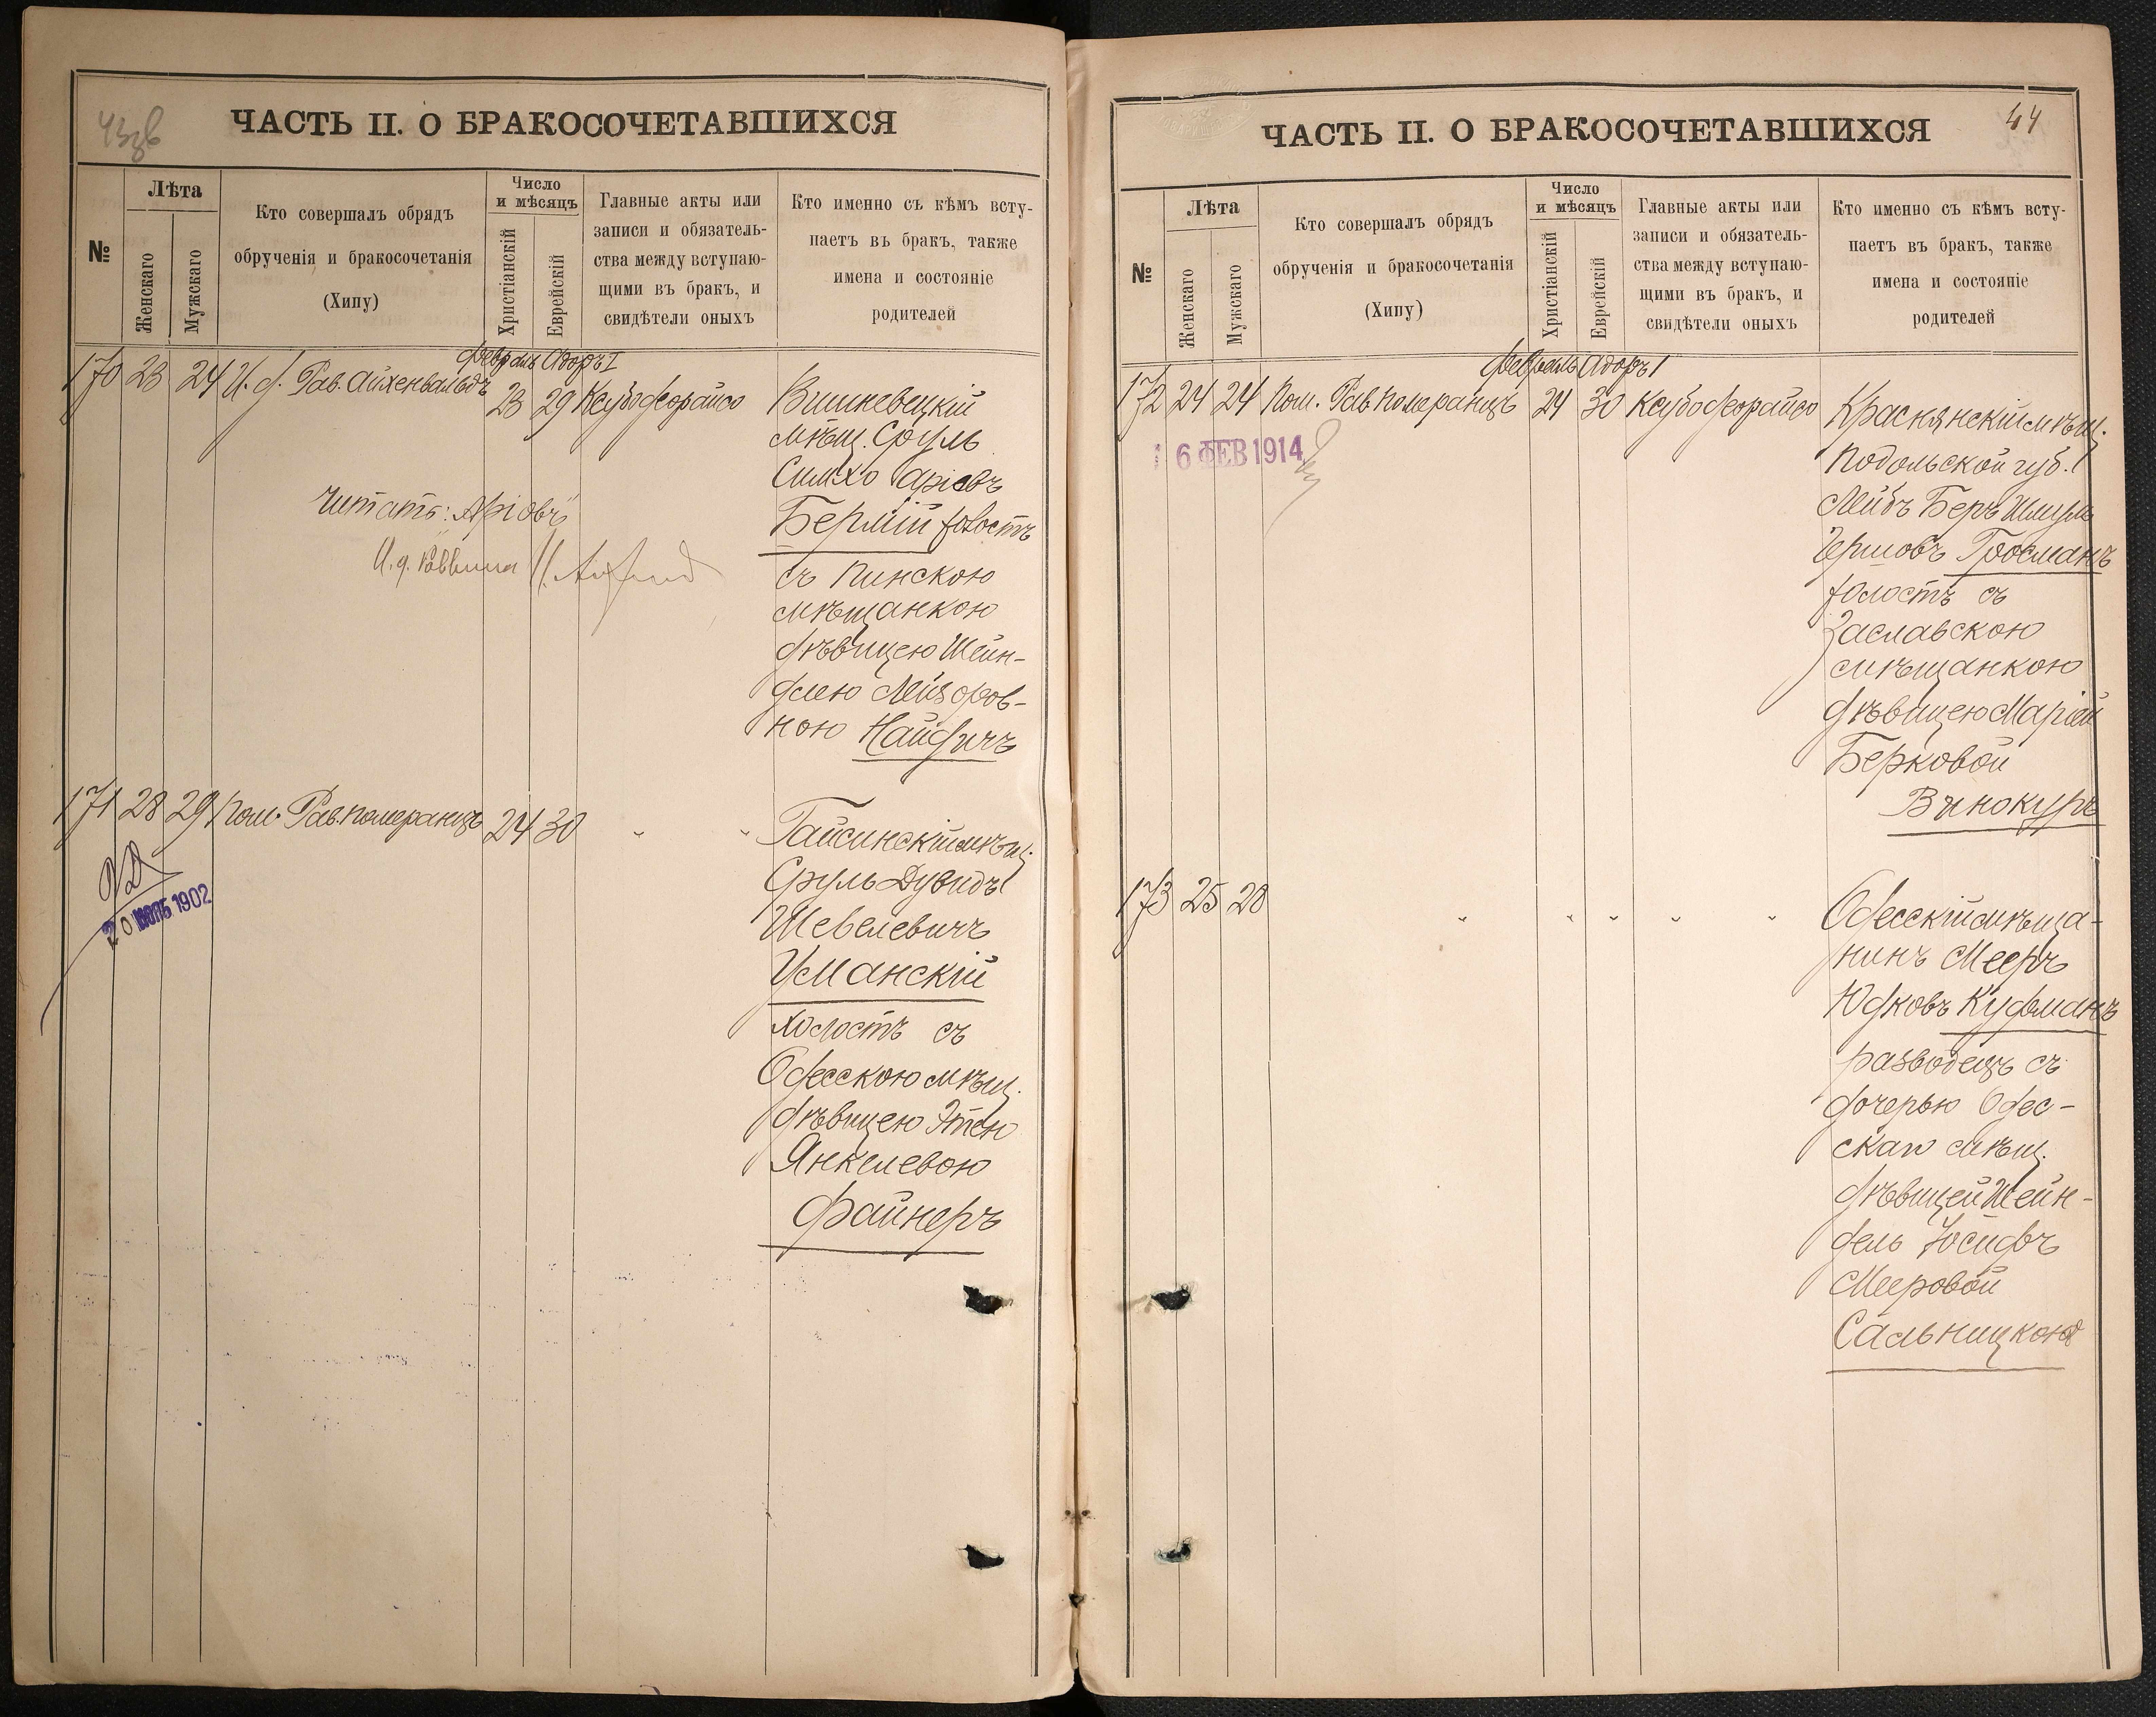 43об
ЧАСТЬ II. О БРАКОСОЧЕТАВШИХСЯ
№
Лѣта
Женскаго
Мужскаго
Кто совершалъ обрядъ
обрученія и бракосочетанія
(Хипу)
Число
и мѣсяцъ
Христіанскій
Еврейскій
Главные акты или
записи и обязатель-
ства между вступаю-
щими въ бракъ, и
свидѣтели оныхъ
Кто именно съ кѣмъ всту-
паетъ въ бракъ, также
имена и состояніе
родителей
Февраль Адоръ I
170 23 24 И. д. Рав. Айхенвальдъ 23 29 Ксубодеорайсо
Вишневецкій
мѣщ. Сруль
Симхо Аріевъ
Бермій холостъ
съ Пинскою
мѣщанкою
дѣвицею Шейн-
длею Лейзоров-
ною Найдичъ
Читать: „Аріовъ"
И. д. Раввина
171 28 29 Пом. Рав. Померанцъ 24 30 " "
Гайсинскій мѣщ.
Сруль Дувидъ
Шевелевичъ
Уманскій
холостъ съ
Одесскою мѣщ.
дѣвицею Этею
Янкелевою
Файнеръ
20 1902
44
ЧАСТЬ II. О БРАКОСОЧЕТАВШИХСЯ
№
Лѣта
Женскаго
Мужскаго
Кто совершалъ обрядъ
обрученія и бракосочетанія
(Хипу)
Число
и мѣсяцъ
Христіанскій
Еврейскій
Главные акты или
записи и обязатель-
ства между вступаю-
щими въ бракъ, и
свидѣтели оныхъ
Кто именно съ кѣмъ всту-
паетъ въ бракъ, также
имена и состояніе
родителей
Февраль Адоръ I
172 24 24 Пом. Рав. Померанцъ 24 30 Ксубодеорайсо
16 ФЕВ 1914
Краснянскій мѣщ.
Подольской губ.
Лейбъ Беръ Шмуль
Гершовъ Гросманъ
холостъ съ
Заславскою
мѣщанкою
дѣвицею Маріей
Берковой
Винокуръ
173 25 28 " " " " "
Одесскій мѣща-
нинъ Мееръ
Юдковъ Куфманъ
разводецъ съ
дочерью Одес-
скаго мѣщ.
дѣвицей Шейн-
дель Іосифъ
Мееровой
Сальницкою